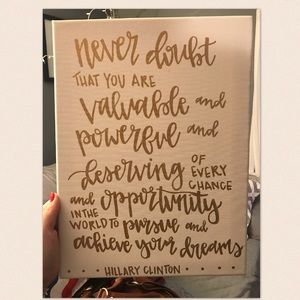 never doubt
THAT YOU ARE
valuable and
powerful and
deserving OF EVERY CHANCE
and opportunity
IN THE WORLD TO pursue and
achieve your dreams
HILLARY CLINTON